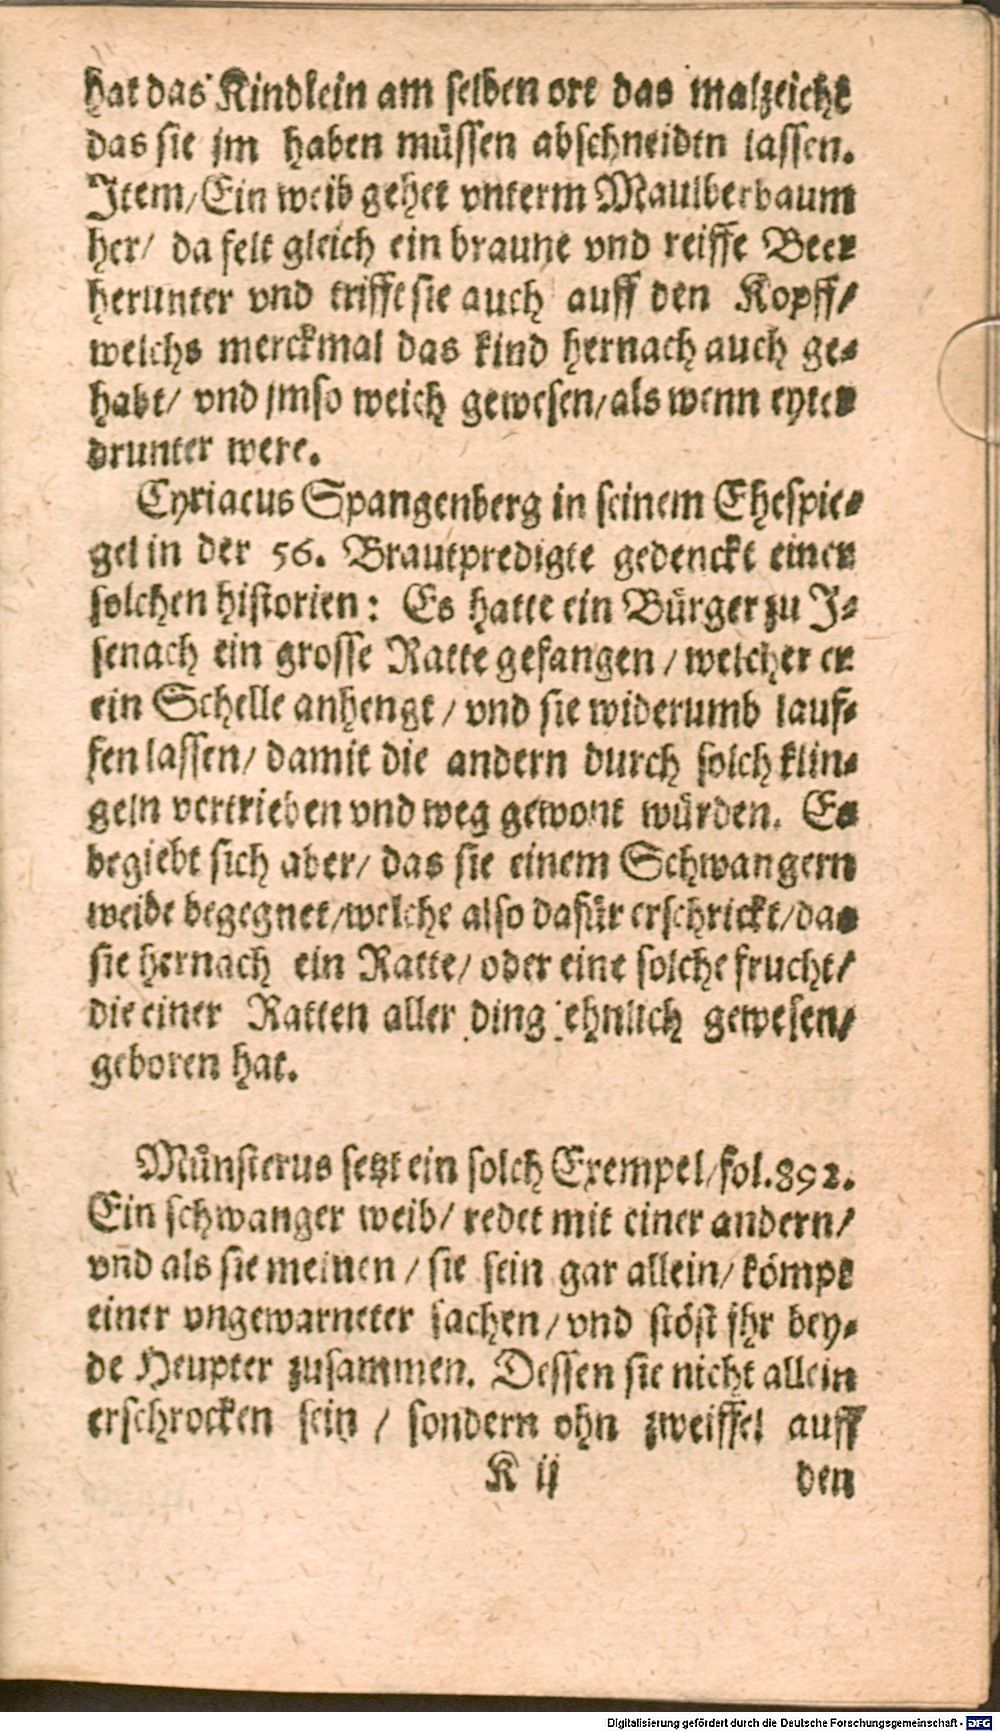 hat das Kindlein am selben ort das malzeicht
das sie jm haben müssen abschneiden lassen.
Item/Ein weib gehet vnterm Maulberbaum
her/ da felt gleich ein braune vnd reiffe Beer
herunter vnd trifft sie auch auff den Kopff/
welchs merckmal das kind hernach auch ge-
habt/ vnd jmso weich gewesen/als wenn eyter
drunter were.
Cyriacus Spangenberg in seinem Ehespie-
gel in der 56. Brautpredigte gedenckt einer
solchen historien: Es hatte ein Bürger zu J-
senach ein grosse Ratte gefangen/ welcher er
ein Schelle anhengt/ vnd sie widerumb lauf-
fen lassen/ damit die andern durch solch klin-
geln vertrieben vnd weg gewont würden. Es
begiebt sich aber/ das sie einem Schwangern
weibe begegnet/welche also dafür erschrickt/das
sie hernach ein Ratte/ oder eine solche frucht/
die einer Ratten aller ding ehnlich gewesen/
geboren hat.
Münsterus setzt ein solch Exempel/fol.892.
Ein schwanger weib/ redet mit einer andern/
vnd als sie meinen/ sie sein gar allein/ kömpt
einer vngewarneter sachen/ vnd stöst jhr bey-
de Heupter zusammen. Dessen sie nicht allein
erschrocken sein/ sondern ohn zweiffel auff
K ij den
Digitalisierung gefördert durch die Deutsche Forschungsgemeinschaft - DFG